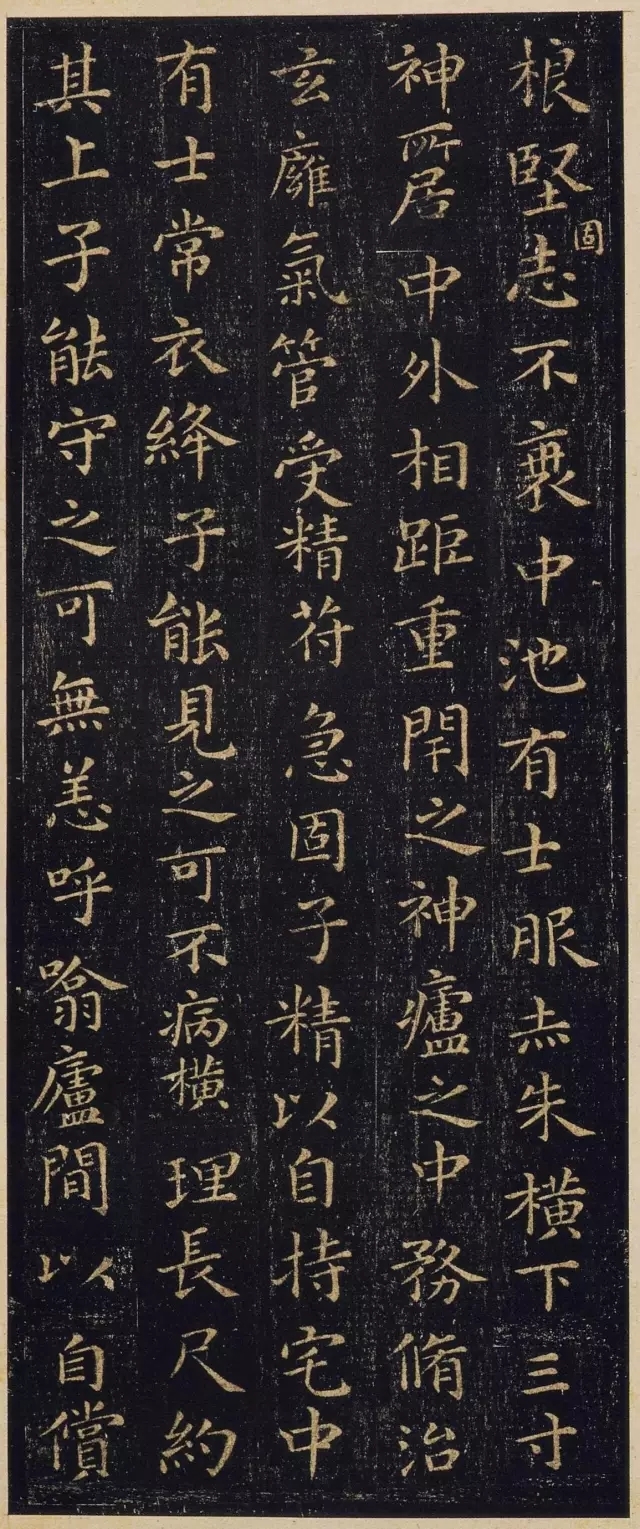 根堅志不衰中池有士服赤朱橫下三寸
固
神所居中外相距重閇之神廬之中務脩治
玄廱氣管受精符急固子精以自持宅中
有士常衣絳子能見之可不病橫理長尺約
其上子能守之可無恙呼噏廬間以自償